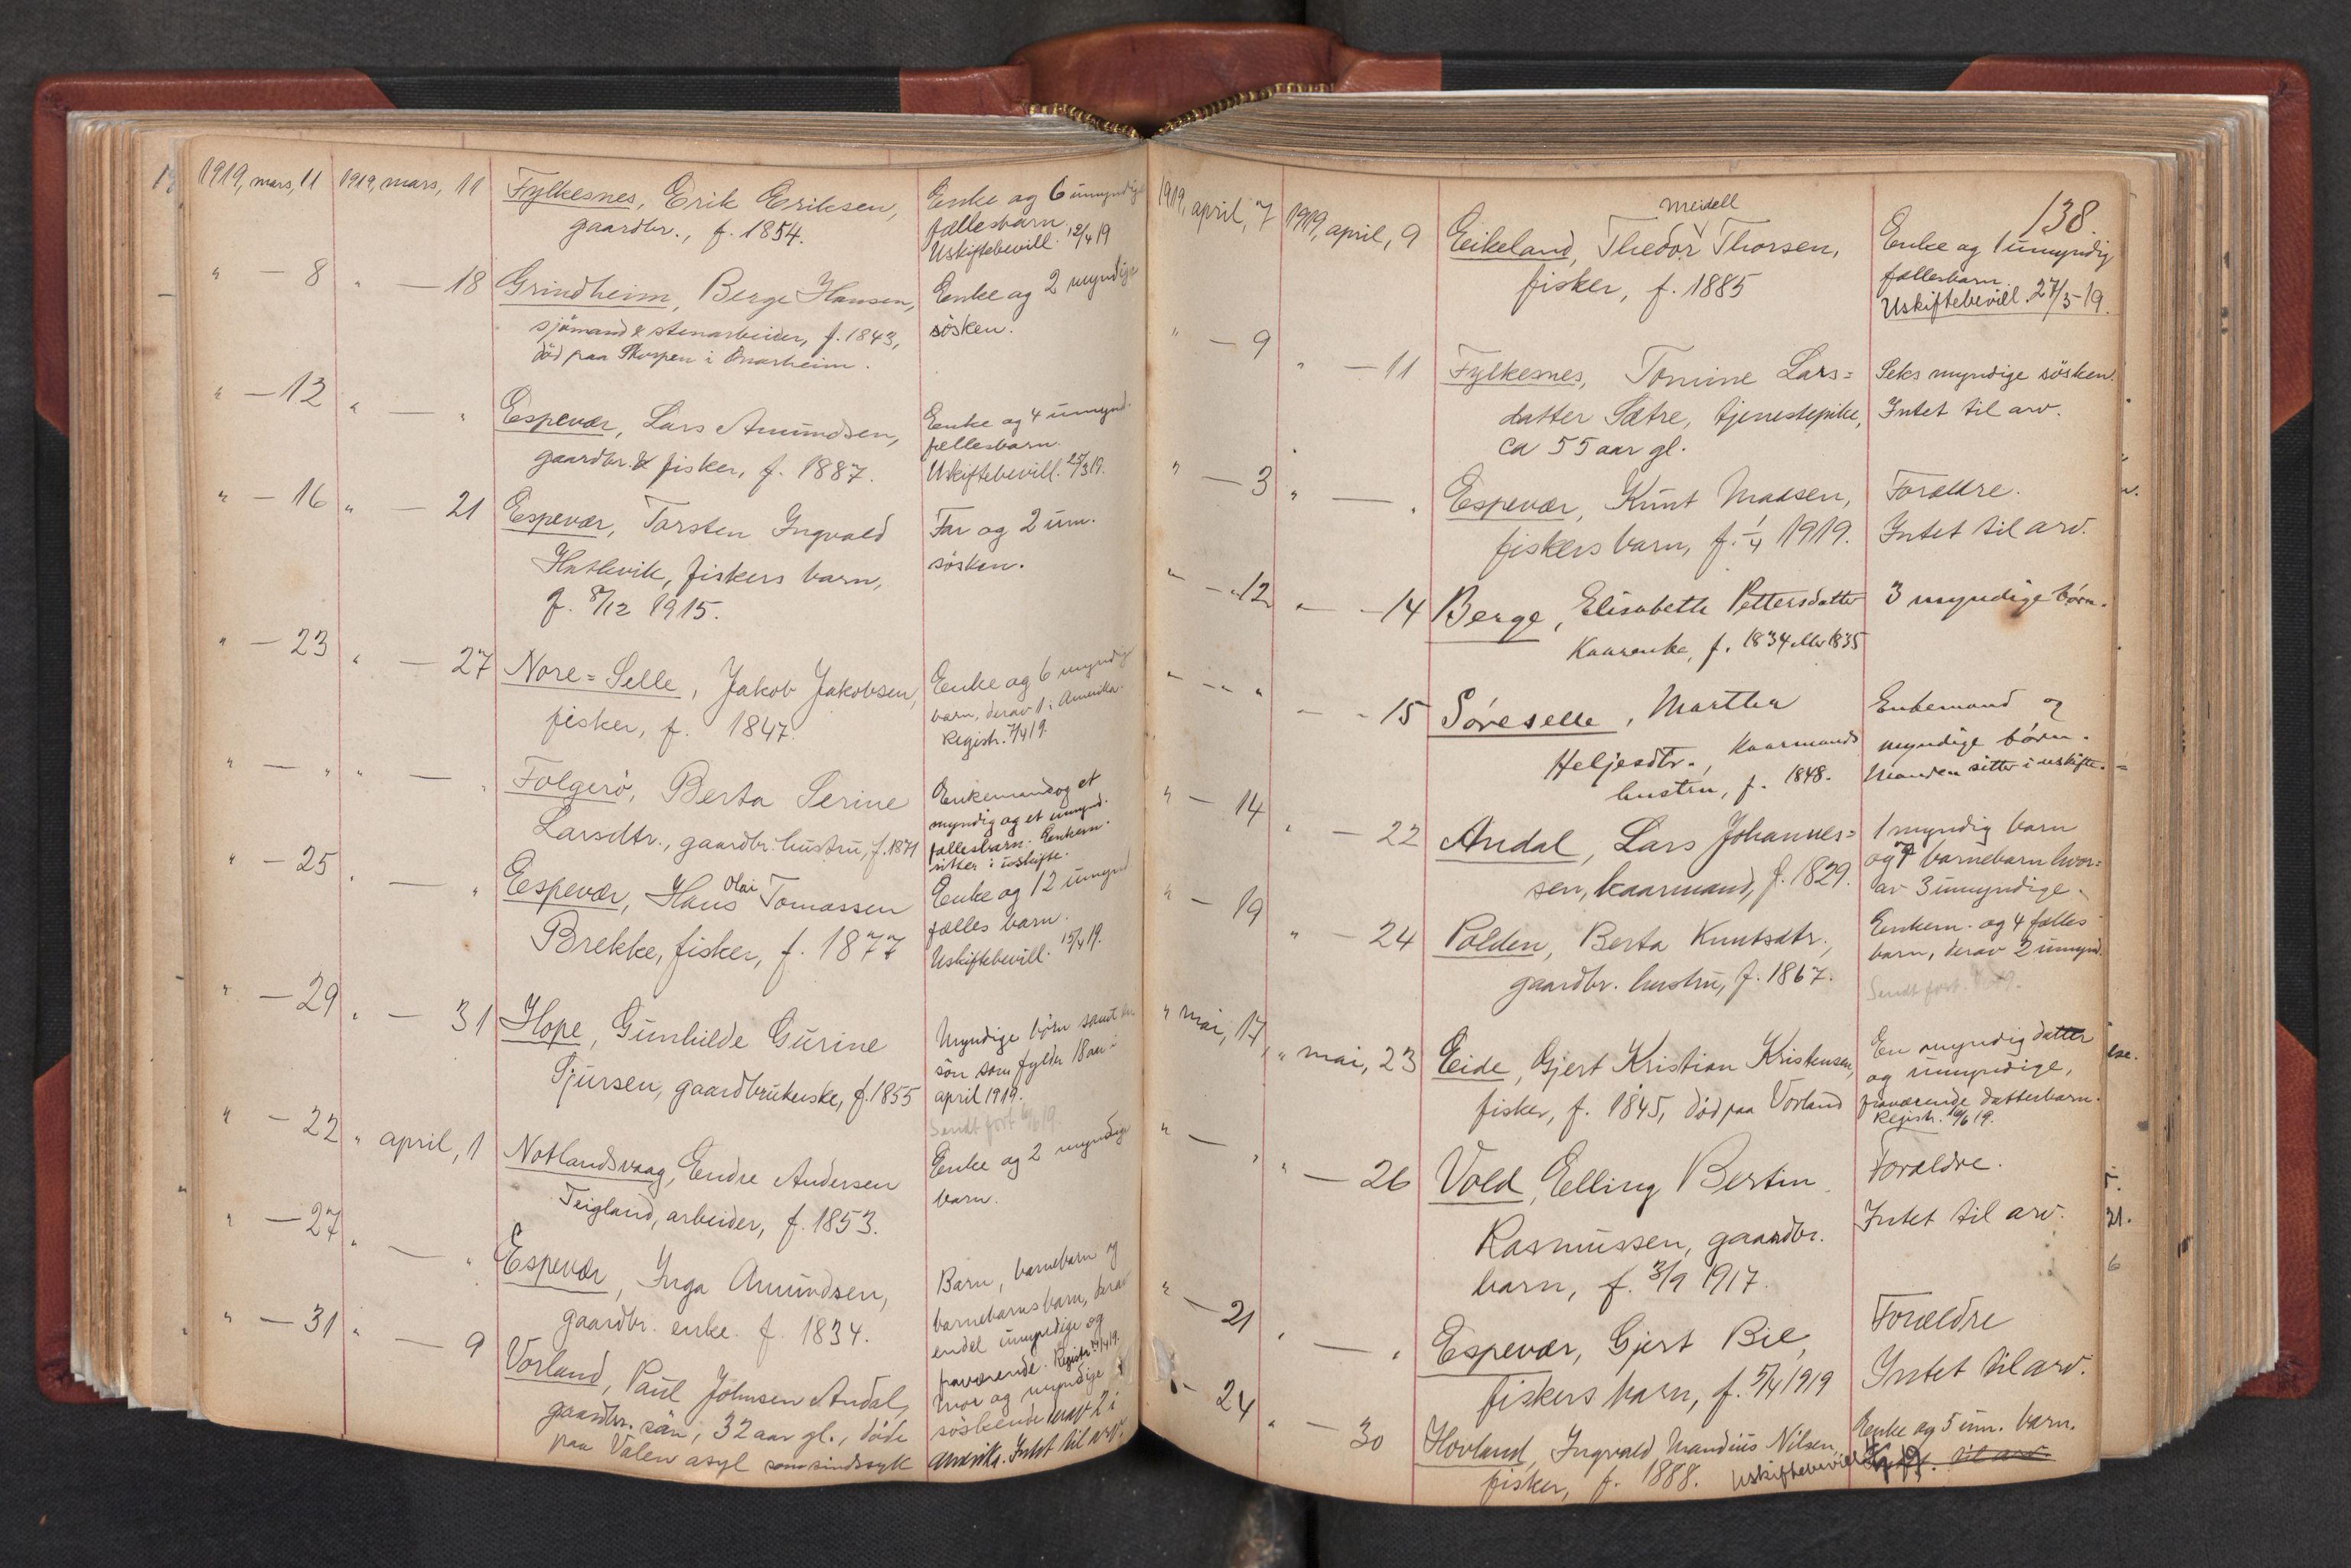 1919, mars, 11 1919, mars, 11 Fylkesnes, Erik Eriksen, Enke og 6 umyndige
gaardbr., f. 1854. fællesbarn
Uskiftebevill. 12/4 19
" — 8 " — 18 Grindheim, Berge Hansen, Enke og 2 myndige
sjömand & stenarbeider, f. 1843, søsken.
död paa i Onarheim.
" — 12 " — " Espevær, Lars Amundsen, Enke og 4 umynd.
gaardbr. & fisker, f. 1887. fællesbarn.
Uskiftebevill. 25/3 19.
" — 16 " — 21 Espevær, Torsten Ingvald Far og 2 um.
Hatlevik, fiskers barn, søsken.
f. 8/12 1915.
" — 23 " — 27 Nore=Selle, Jakob Jakobsen, Enke og 6 myndig
fisker, f. 1847. barn, derav 1 i Amerika.
Registr. 7/4 19.
" — " " — " Folgerö, Berta Serine Enkemand og et
Larsdtr., gaardbr. hustru, f. 1871 myndig og et umynd.
fællesbarn. Enkem.
sitter i uskifte.
" — 25 " — " Espevær, Hans Olai Tomassen Enke og 12 umynd
Brekke, fisker, f. 1877 fælles barn.
Uskiftebevill. 15/4 19.
" — 29 " — 31 Hope, Gunhilde Gurine Myndige börn samt en
Sjursen, gaardbrukerske, f. 1855 sön som fylder 18 aar i
april 1919.
Sendt fort 19.
" — 22 " april, 1 Notlandsvaag, Endre Andersen Enke og 2 myndige
Teigland, arbeider, f. 1853. barn.
" — 27 " — " Espevær, Inga Amundsen, Barn, barnebarn og
gaardbr. enke. f. 1834. barnebarnsbarn, derav
endel umyndige og
fraværende. Registr. 19.
" — 31 " — 9 Vorland, Paul Johnsen Andal, Mor og myndige
gaardbr. sön, 32 aar gl., döde søskende derav 2 i
paa Valen asyl som sindssyk Amerika. Intet til arv.
138.
1919, april, 7 1919, april, 9 Eikeland, Thedor Meidell Thorsen, Enke og 1 umyndig
fisker, f. 1885 fællesbarn.
Uskiftebevill. 27/5-19.
" — 9 " — 11 Fylkesnes, Tomine Lars= Seks myndige søsken.
datter Sætre, tjenestepike, Intet til arv.
ca 55 aar gl.
" — 3 " — " Espevær, Knut Madsen, Forældre.
fiskers barn, f. 1/4 1919. Intet til arv.
" — 12 " — 14 Berge, Elisabeth Pettersdatter 3 myndige børn.
Kaarenke, f. 1834 eller 1835
" — " " — 15 Søreselle, Martha Enkemand og
Heljesdtr., Kaarmands myndige børn.
hustru, f. 1848. Manden sitter i uskifte.
" — 14 " — 22 Andal, Lars Johannes= 1 myndig barn
sen, kaarmand, f. 1829. og 7 barnebarn hvor=
av 3 umyndige.
" — 19 " — 24 Polden, Berta Knutsdtr., Enkem. og 4 fælles
gaardbr. hustru, f. 1867. barn, derav 2 umynd.
Sendt fort. 19.
" mai, 17 " mai, 23 Eide, Gjert Kristian Kristensen, En myndig datter
fisker, f. 1845, död paa Vorland og umyndige,
fraværende datterbarn.
Registr. 19.
" — " " — 26 Vold, Elling Bertin Forældre.
Rasmussen, gaardbr. Intet til arv.
barn, f. 3/9 1917.
" — 21 " — " Espevær, Gjert Bie, Forældre
fiskers barn, f. 5/4 1919 Intet til arv.
" — 24 " — 30 Hovland, Ingvald Mandius Nilsen, Enke og 5 um. barn.
fisker, f. 1888. Uskiftebevill. 19. til arv.